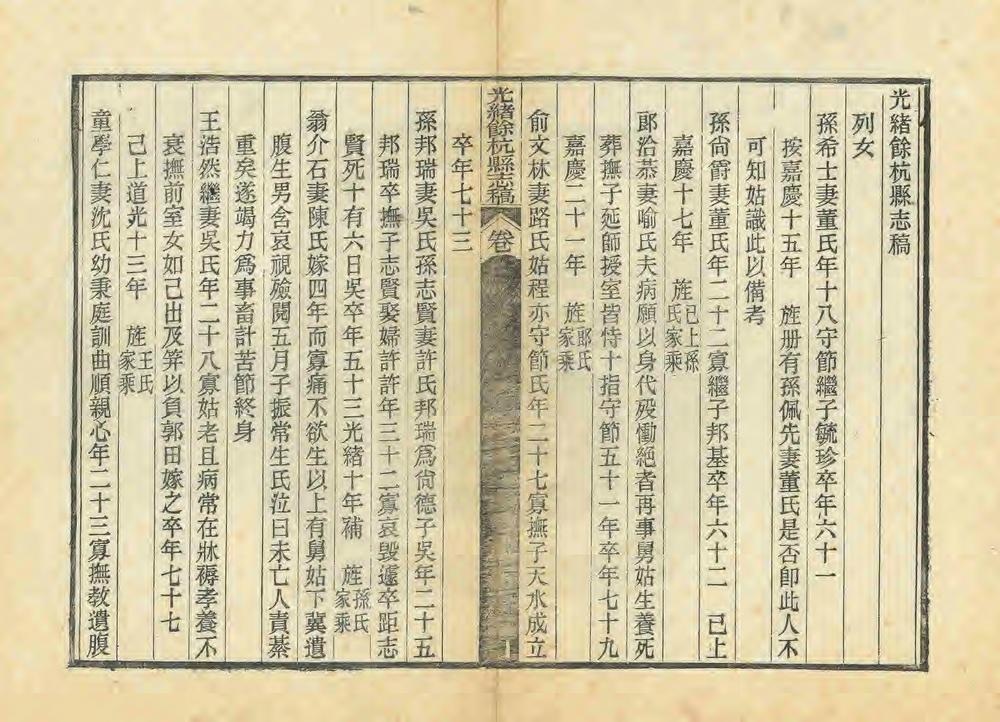 光緒餘杭縣志稿
列女
孫希士妻董氏年十八守節繼子毓珍卒年六十一
按嘉慶十五年 旌册有孫佩先妻董氏是否卽此人不
可知姑識此以備考
孫尙爵妻董氏年二十二寡繼子邦基卒年六十二 已上
嘉慶十七年 旌已上孫氏家乘
郞洽恭妻喻氏夫病願以身代歿慟絶者再事舅姑生養死
葬撫子延師授室皆恃十指守節五十一年卒年七十九
嘉慶二十一年 旌郞氏家乘
俞文林妻路氏姑程亦守節氏年二十七寡撫子天水成立
光緒餘杭縣志稿 卷
卒年七十三
孫邦瑞妻吳氏孫志賢妻許氏邦瑞爲尙德子吳年二十五
邦瑞卒撫子志賢娶婦許許年三十二寡哀毀遽卒距志
賢死十有六日吳卒年五十三光緒十年補 旌孫氏家乘
翁介石妻陳氏嫁四年而寡痛不欲生以上有舅姑下冀遺
腹生男含哀視殮閱五月子振常生氏泣曰未亡人責綦
重矣遂竭力爲事畜計苦節終身
王浩然繼妻吳氏年二十八寡姑老且病常在牀褥孝養不
衰撫前室女如己出及笄以負郭田嫁之卒年七十七
己上道光十三年 旌王氏家乘
童學仁妻沈氏幼秉庭訓曲順親心年二十三寡撫教遺腹